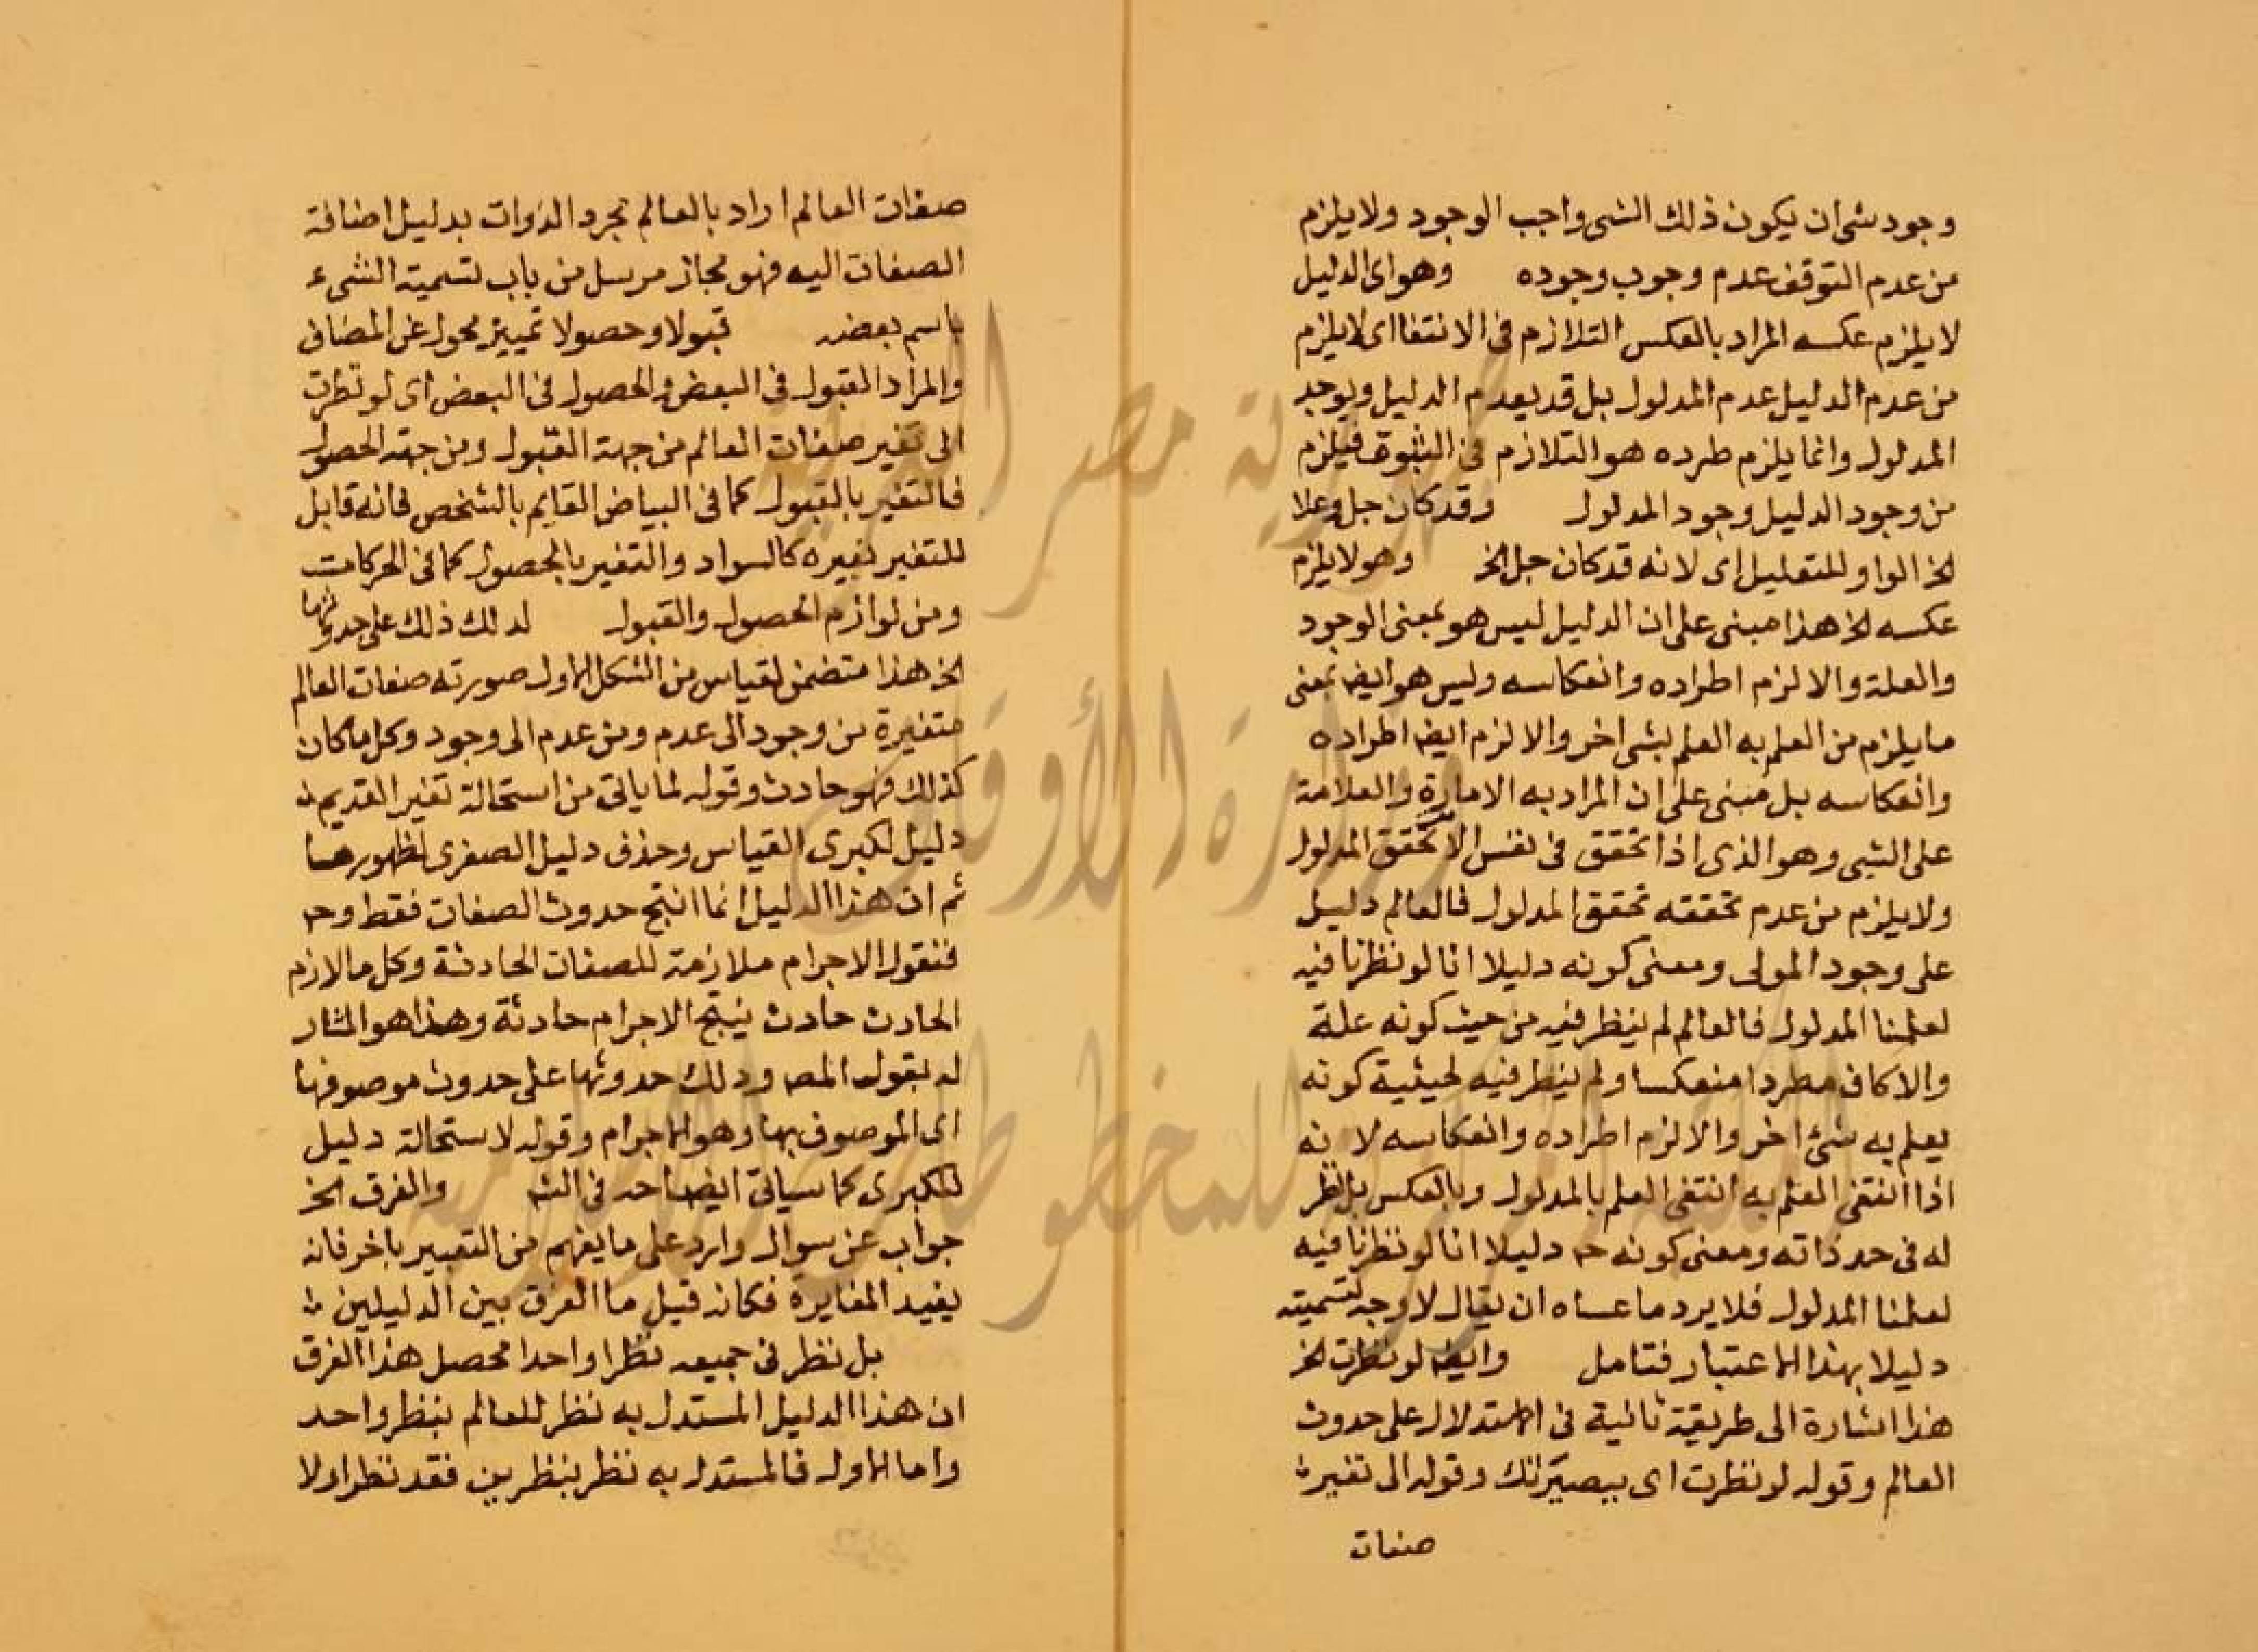 وجود شى ان يكون ذلك الشى واجب الوجود ولا يلزم
من عدم التوقف عدم وجوب وجوده وهو اى الدليل
لا يلزم عكسه المراد بالعكس التلازم فى الانتفا اى لا يلزم
من عدم الدليل عدم المدلول بل قد يعدم الدليل ويوجد
المدلول وانما يلزم طرده هو التلازم فى الثبوت فيلزم
من وجود الدليل وجود المدلول وقد كان جل وعلا
الخ الواو للتعليل اى لانه قد كان جل الخ وهو لا يلزم
عكسه الخ هذا مبنى على ان الدليل ليس هو بمعنى الوجود
والعلة والا لزم اطراده وانعكاسه وليس هو ايضا بمعنى
ما يلزم من العلم به العلم بشى اخر والا لزم ايضا اطراده
وانعكاسه بل مبنى على ان المراد به الامارة والعلامة
على الشى وهو الذى اذا تحقق فى نفس الا تحقق المدلول
ولا يلزم من عدم تحققه تحقق المدلول فالعالم دليل
على وجود المولى ومعنى كونه دليلا انا لو نظرنا فيه
لعلمنا المدلول فالعالم لم ينظر فيه من حيث كونه علة
والا كان مطردا منعكسا ولم ينظر فيه لحيثية كونه
يعلم به شئ اخر والا لزم اطراده وانعكاسه لانه
اذا انتفى العلم به انتفى العلم بالمدلول وبالعكس بل نظر
له فى حد ذاته ومعنى كونه ح دليلا انا لو نظرنا فيه
لعلمنا المدلول فلا يرد ما عساه ان يقال لا وجه لتسميته
دليلا بهذا الاعتبار فتامل وايضا لو نظرت الخ
هذا اشارة الى طريقة ثانية فى الاستدلال على حدوث
العالم وقوله لو نظرت اى ببصيرتك وقوله الى تغير
صفات
صفات العالم اراد بالعالم مجرد الذوات بدليل اضافة
الصفات اليه فهو مجاز مرسل من باب تسمية الشىء
باسم بعضه قبولا وحصولا تمييز محول عن المضاف
والمراد القبول فى البعض والحصول فى البعض اى لو نظرت
الى تغير صفات العالم من جهة القبول ومن جهة الحصول
فالتغير بالقبول كما فى البياض القايم بالشخص فانه قابل
للتغير بغيره كالسواد والتغير بالحصول كما فى الحركات
ومن لوازم الحصول والقبول لدلك ذلك على حدوثها
الخ هذا متضمن لقياس من الشكل الاول صورته صفات العالم
متغيرة من وجود الى عدم ومن عدم الى وجود وكل ما كان
كذلك فهو حادث وقوله لما ياتى من استحالة تغير القديم
دليل لكبرى القياس وحذف دليل الصغرى لظهورها
ثم ان هذا الدليل انما انتج حدوث الصفات فقط وح
فنقول الاجرام ملازمة للصفات الحادثة وكل ما لازم
الحادث حادث ينتج الاجرام حادثة وهذا هو المشار
له بقول المص ودلك حدوثها على حدوث موصوفها
اى الموصوف بها وهو الاجرام وقوله لاستحالة دليل
للكبرى كما سياتى ايضاحه فى الش والفرق الخ
جواب عن سوال وارد على ما يفهم من التعبير باخر فانه
يفيد المغايرة فكانه قيل ما الفرق بين الدليلين
بل نظر فى جميعه نظرا واحدا محصل هذا الفرق
ان هذا الدليل المستدل به نظر للعالم بنظر واحد
واما الاول فالمستدل به نظر بنظرين فقد نظر اولا
جمهورية مصر العربية
وزارة الأوقاف
المكتبة المركزية للمخطوطات الإسلامية